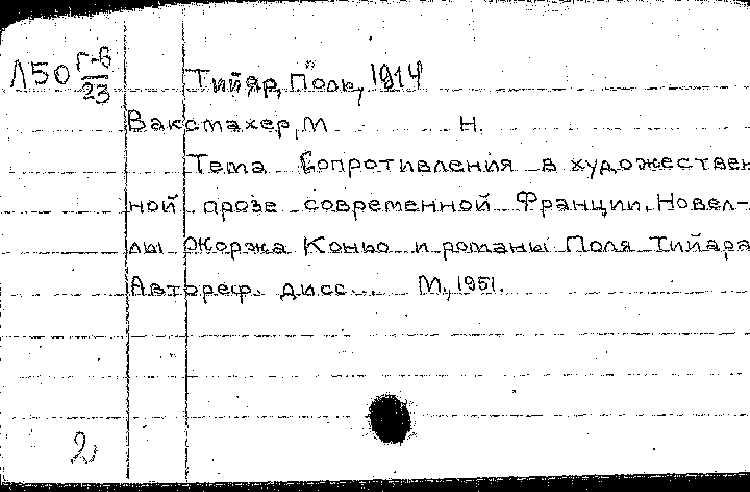 Л50 Г-В
23
Тийяр, Поль, 1914
Ваксмахер, М. Н.
Тема Сопротивления в художествен
ной прозе современной Франции. Новел-
лы Жоржа Коньо и романы Поля Тийара
Автореф. дисс... М., 1951.
2